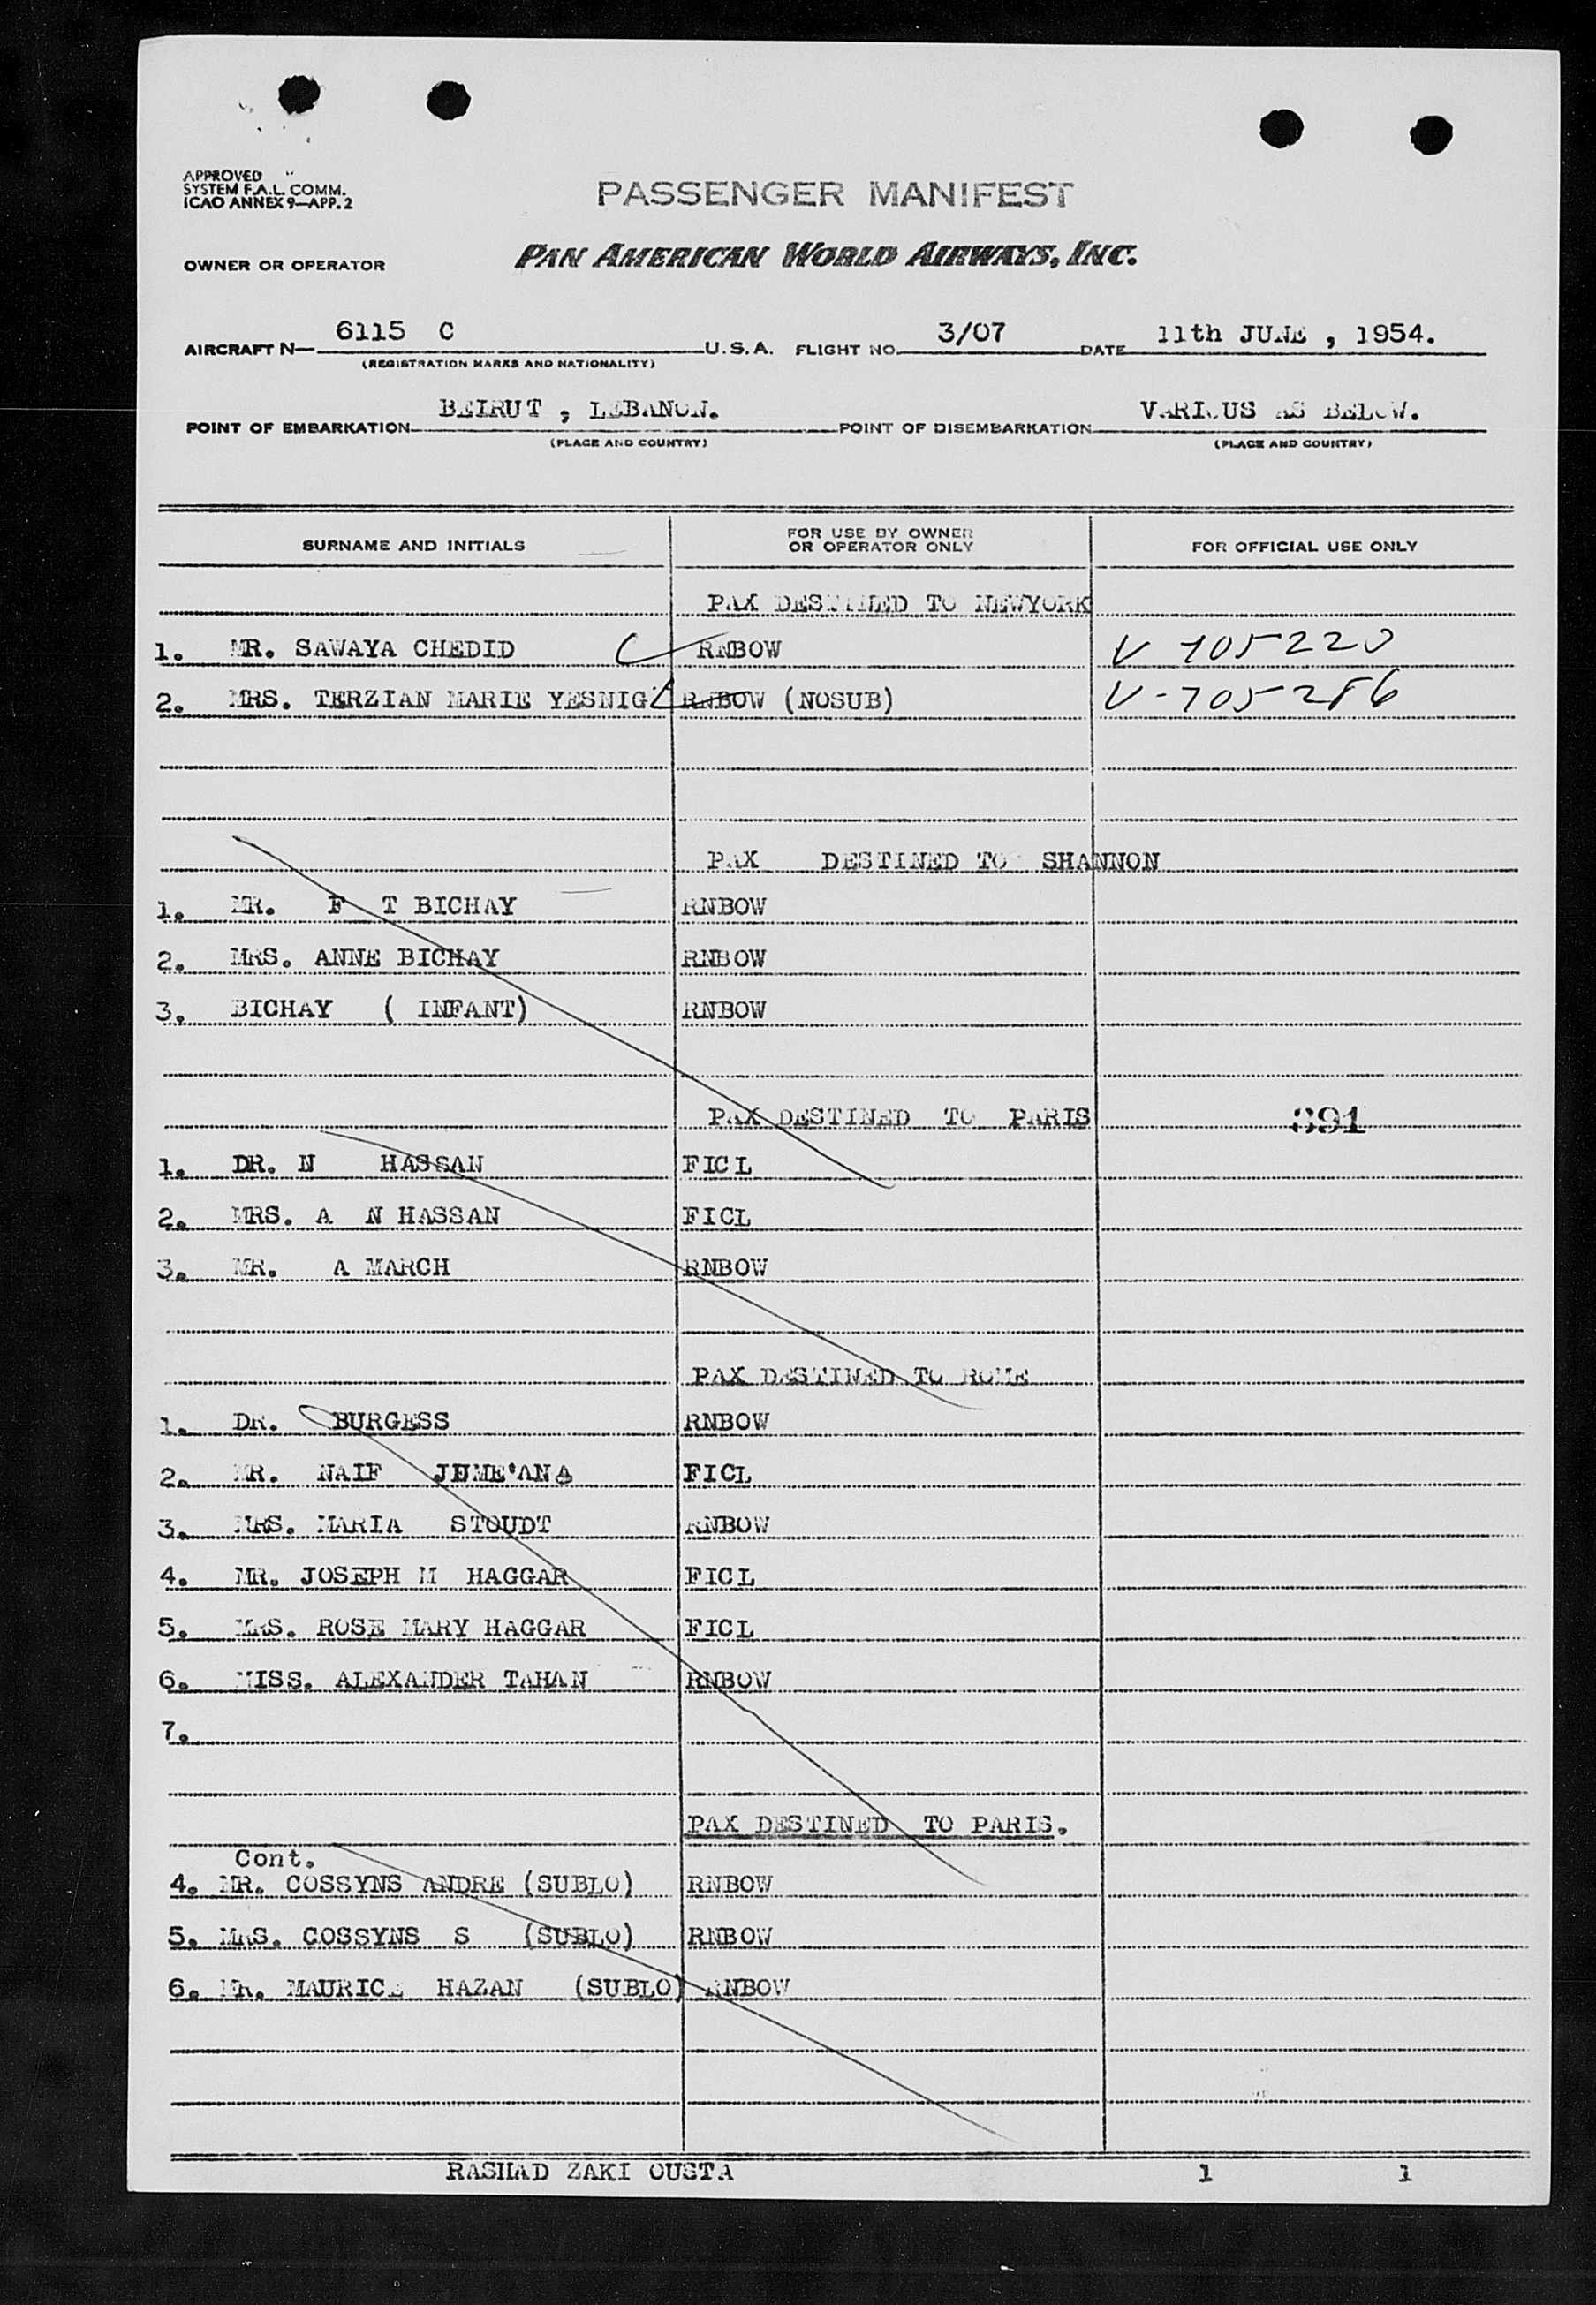 APPROVED
SYSTEM F.A.L. COMM.
ICAO ANNEX 9—APP. 2
PASSENGER MANIFEST
OWNER OR OPERATOR PAN AMERICAN WORLD AIRWAYS, INC.
AIRCRAFT N— 6115 C U.S.A. FLIGHT NO. 3/07 DATE 11th JUNE , 1954.
(REGISTRATION MARKS AND NATIONALITY)
POINT OF EMBARKATION BEIRUT , LEBANON. POINT OF DISEMBARKATION VARIOUS AS BELOW.
(PLACE AND COUNTRY) (PLACE AND COUNTRY)
SURNAME AND INITIALS FOR USE BY OWNER OR OPERATOR ONLY FOR OFFICIAL USE ONLY
PAX DESTINED TO NEWYORK
1. MR. SAWAYA CHEDID RNBOW V 705220
2. MRS. TERZIAN MARIE YESNIG RNBOW (NOSUB) V-705286
PAX DESTINED TO SHANNON
1. MR. F T BICHAY RNBOW
2. MRS. ANNE BICHAY RNBOW
3. BICHAY ( INFANT) RNBOW
PAX DESTINED TO PARIS 391
1. DR. N HASSAN FICL
2. MRS. A N HASSAN FICL
3. MR. A MARCH RNBOW
PAX DESTINED TO ROME
1. DR. BURGESS RNBOW
2. MR. NAIF JUME'ANA FICL
3. MRS. MARIA STOUDT RNBOW
4. MR. JOSEPH M HAGGAR FICL
5. MRS. ROSE MARY HAGGAR FICL
6. MISS. ALEXANDER TAHAN RNBOW
7.
PAX DESTINED TO PARIS.
Cont.
4. MR. COSSYNS ANDRE (SUBLO) RNBOW
5. MRS. COSSYNS S (SUBLO) RNBOW
6. MR. MAURICE HAZAN (SUBLO) RNBOW
RASHAD ZAKI OUSTA 1 1